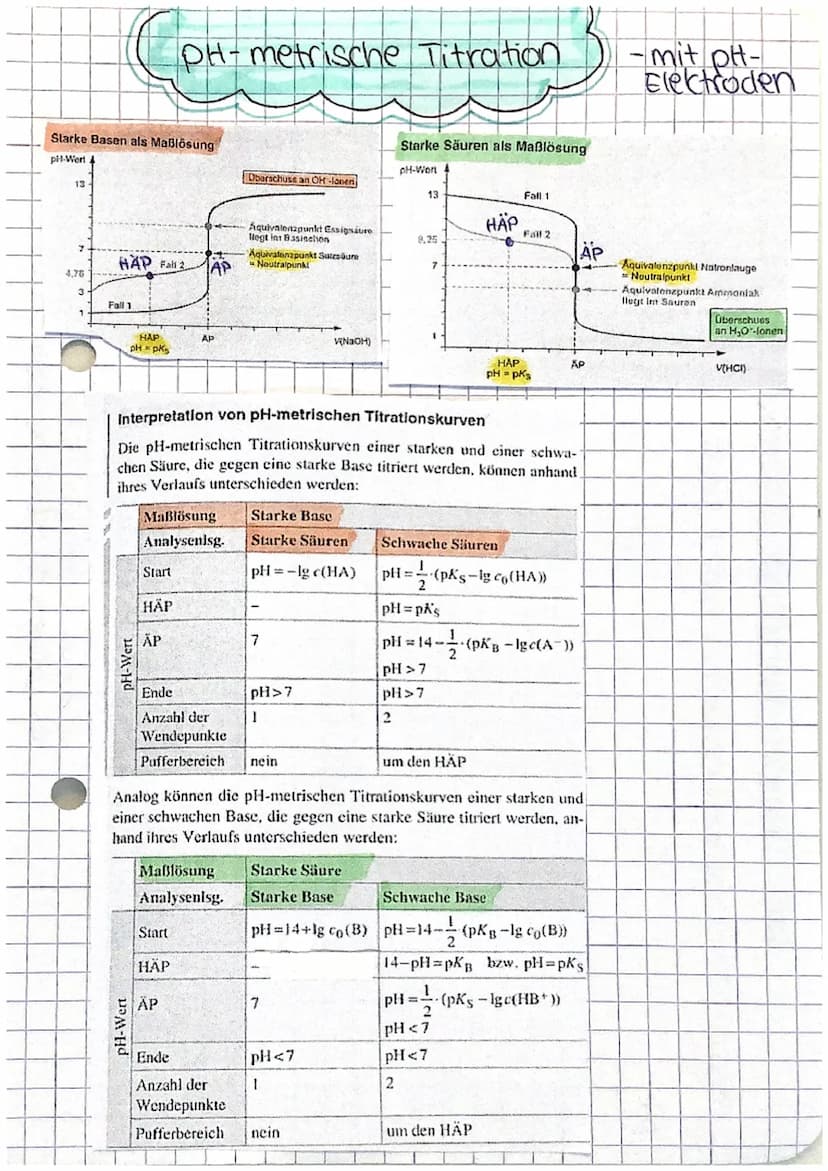 pH-metrische Titration
- mit pH-
Elektroden
Starke Basen als Maßlösung
pH-Wert
13
7
4,76
3
1
Überschuss an OH⁻-Ionen
Äquivalenzpunkt Essigsäure
liegt im Basischen
Äquivalenzpunkt Salzsäure
= Neutralpunkt
HÄP
Fall 2
ÄP
Fall 1
HÄP
pH = pKs
ÄP
V(NaOH)
Starke Säuren als Maßlösung
pH-Wert
13
9,25
7
1
Fall 1
HÄP
Fall 2
ÄP
Äquivalenzpunkt Natronlauge
= Neutralpunkt
Äquivalenzpunkt Ammoniak
liegt im Sauren
Überschuss
an H₃O⁺-Ionen
HÄP
pH = pKs
ÄP
V(HCl)
Interpretation von pH-metrischen Titrationskurven
Die pH-metrischen Titrationskurven einer starken und einer schwa-
chen Säure, die gegen eine starke Base titriert werden, können anhand
ihres Verlaufs unterschieden werden:
Maßlösung Starke Base
Analysenlsg. Starke Säuren Schwache Säuren
pH-Wert
Start pH = −lg c(HA) pH = 1/2 · (pKS − lg c₀(HA))
HÄP – pH = pKS
ÄP 7 pH = 14 − 1/2 · (pKB − lg c(A⁻))
pH > 7
Ende pH > 7 pH > 7
Anzahl der 1 2
Wendepunkte
Pufferbereich nein um den HÄP
Analog können die pH-metrischen Titrationskurven einer starken und
einer schwachen Base, die gegen eine starke Säure titriert werden, an-
hand ihres Verlaufs unterschieden werden:
Maßlösung Starke Säure
Analysenlsg. Starke Base Schwache Base
pH-Wert
Start pH = 14 + lg c₀(B) pH = 14 − 1/2 · (pKB − lg c₀(B))
HÄP – 14 − pH = pKB bzw. pH = pKS
ÄP 7 pH = 1/2 · (pKS − lg c(HB⁺))
pH < 7
Ende pH < 7 pH < 7
Anzahl der 1 2
Wendepunkte
Pufferbereich nein um den HÄP